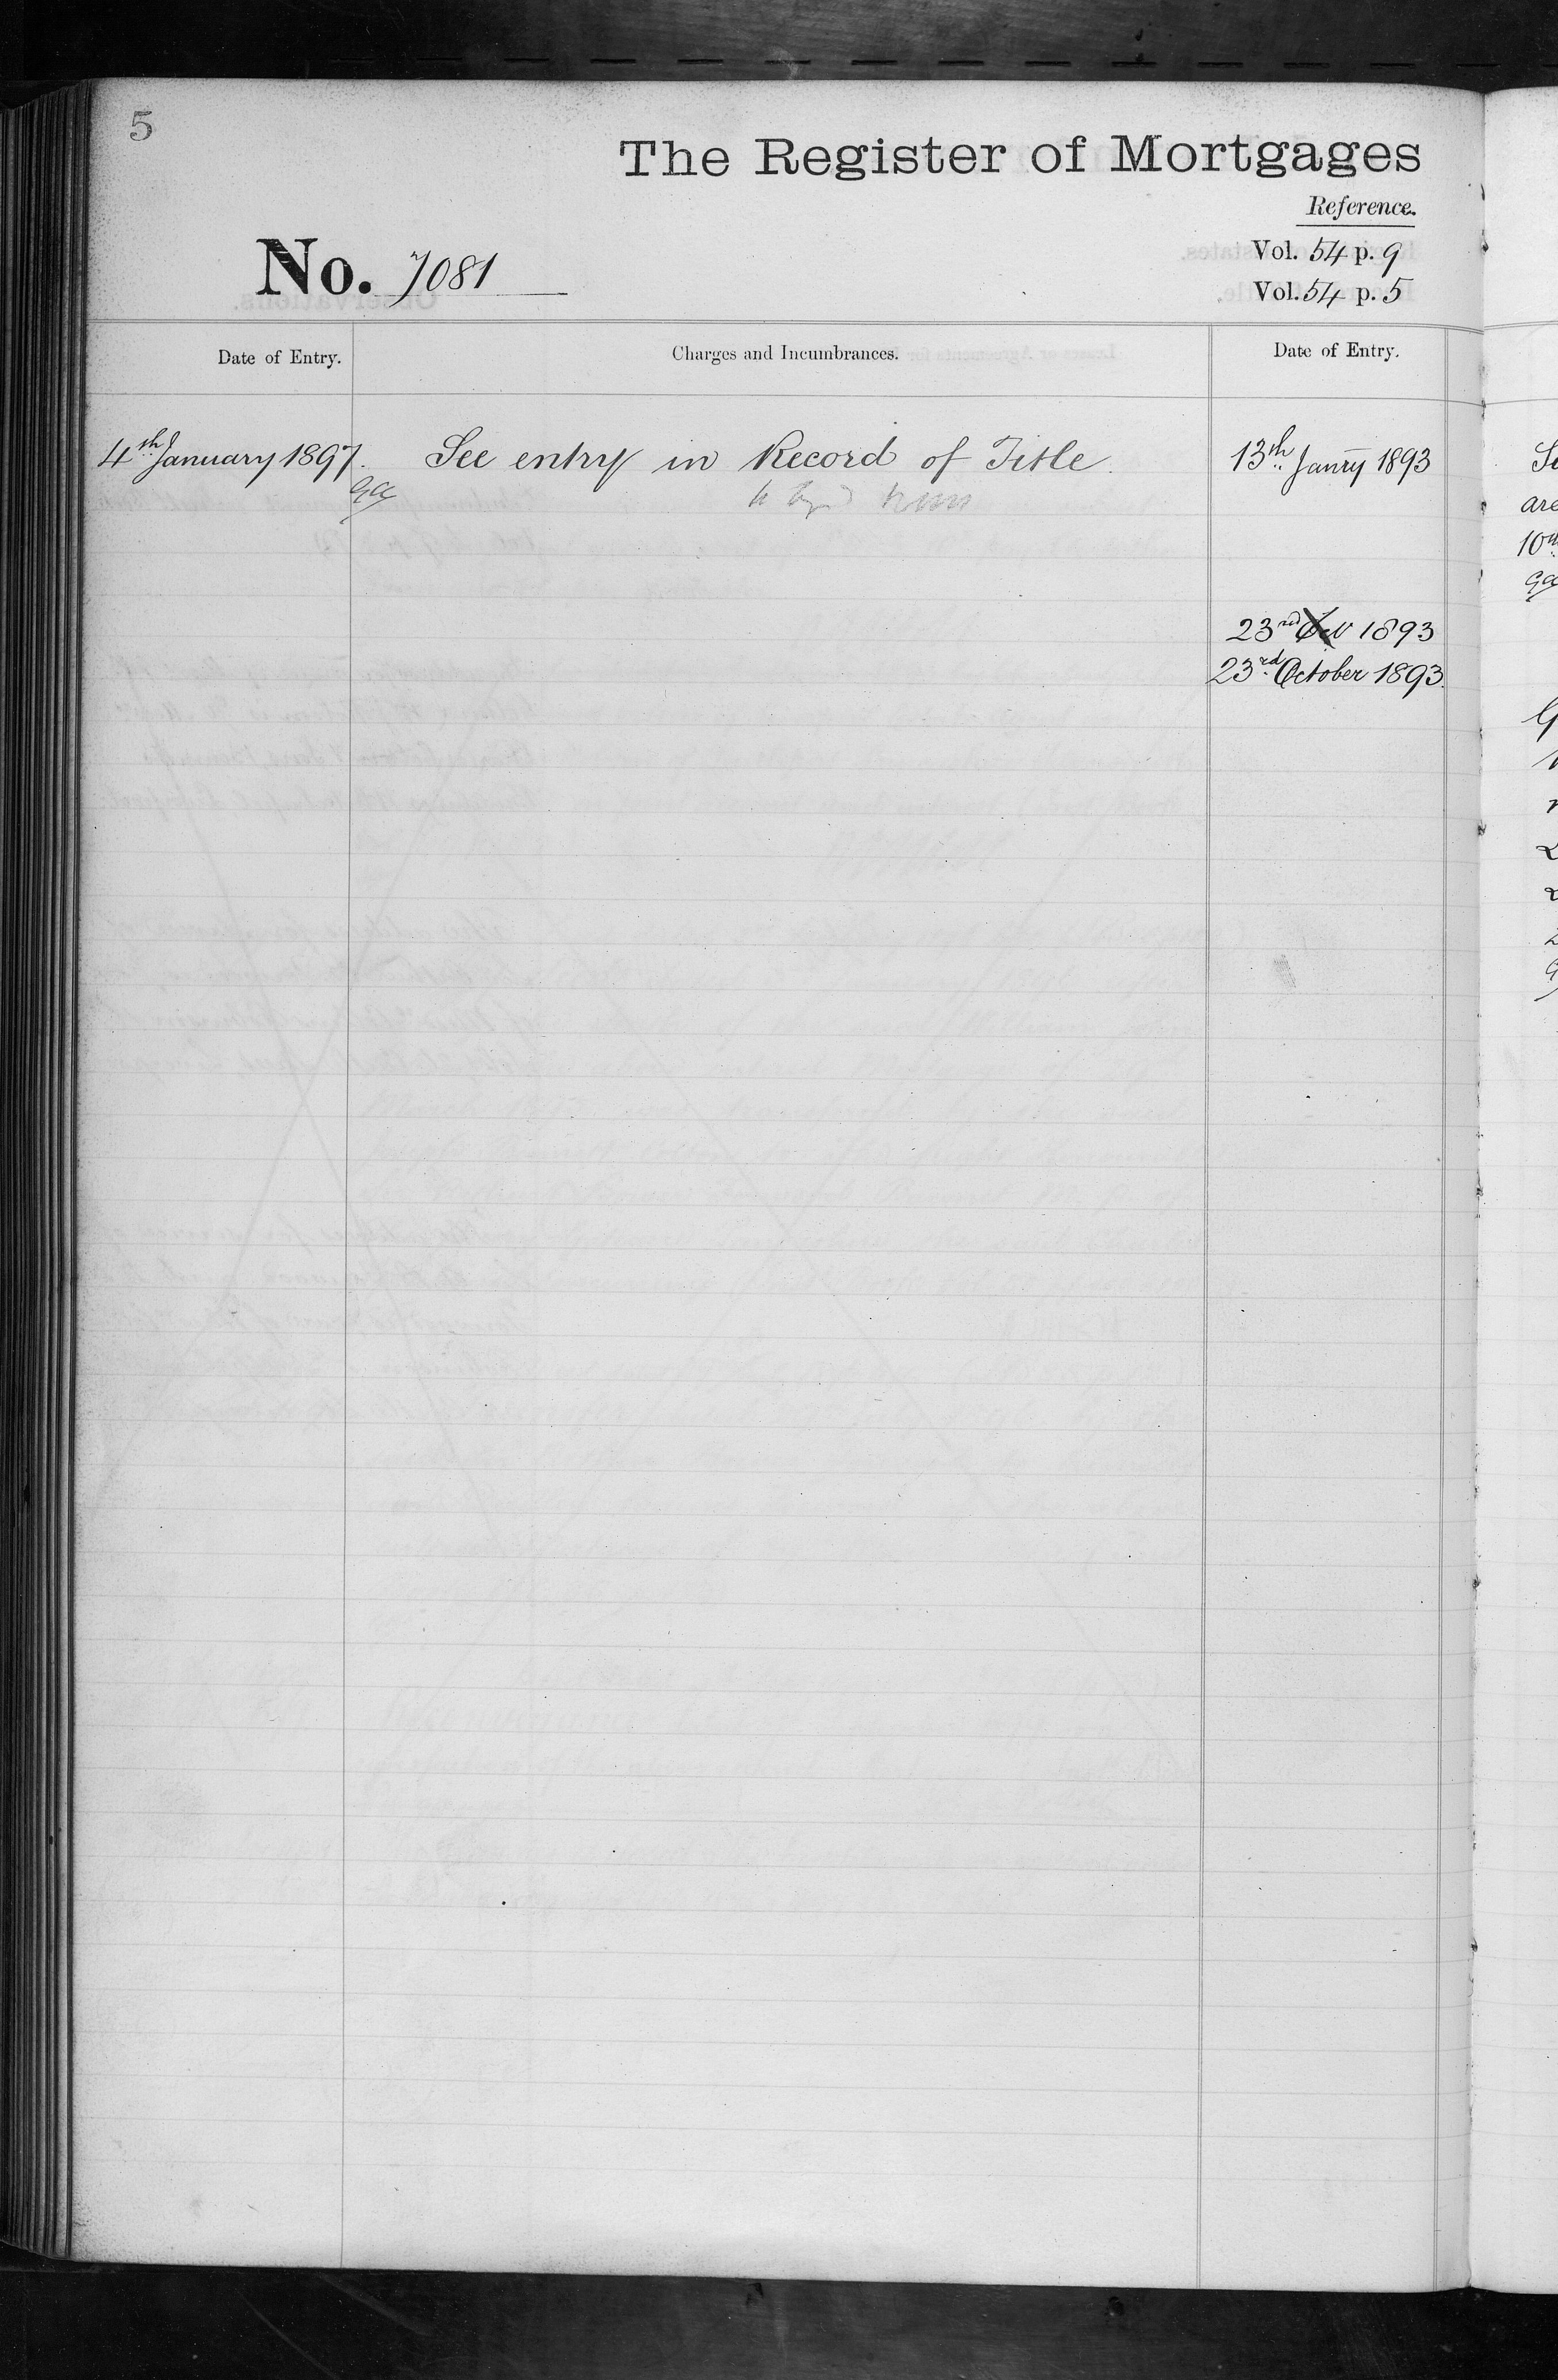 5
The Register of Mortgages
Reference.
No. 7081
Vol. 54 p. 9
Vol. 54 p. 5
Date of Entry.
Charges and Incumbrances.
Date of Entry.
4th January 1897.
See entry in Record of Title.
13th Janry 1893
23rd 1893
23rd October 1893
are
10th